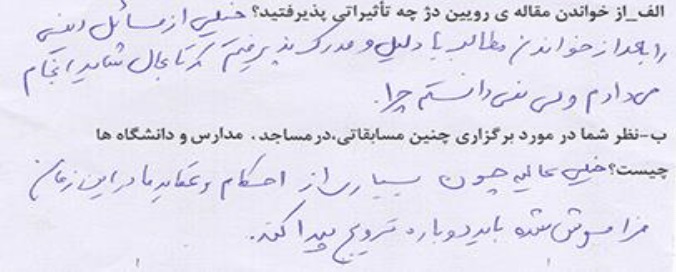 الف_از خواندن مقاله ی رویین دژ چه تأثیراتی پذیرفتید؟ خیلی از مسائل دینی
را بعد از خواندن مطالب با دلیل و مدرک پذیرفتم که تا بحال شاید انجام
می دادم ولی نمی دانستم چرا.
ب-نظر شما در مورد برگزاری چنین مسابقاتی،درمساجد ، مدارس و دانشگاه ها
چیست؟ خیلی عالیه چون بسیاری از احکام و عقاید ما در این زمان
فراموش شده باید دوباره ترویج پیدا کند.